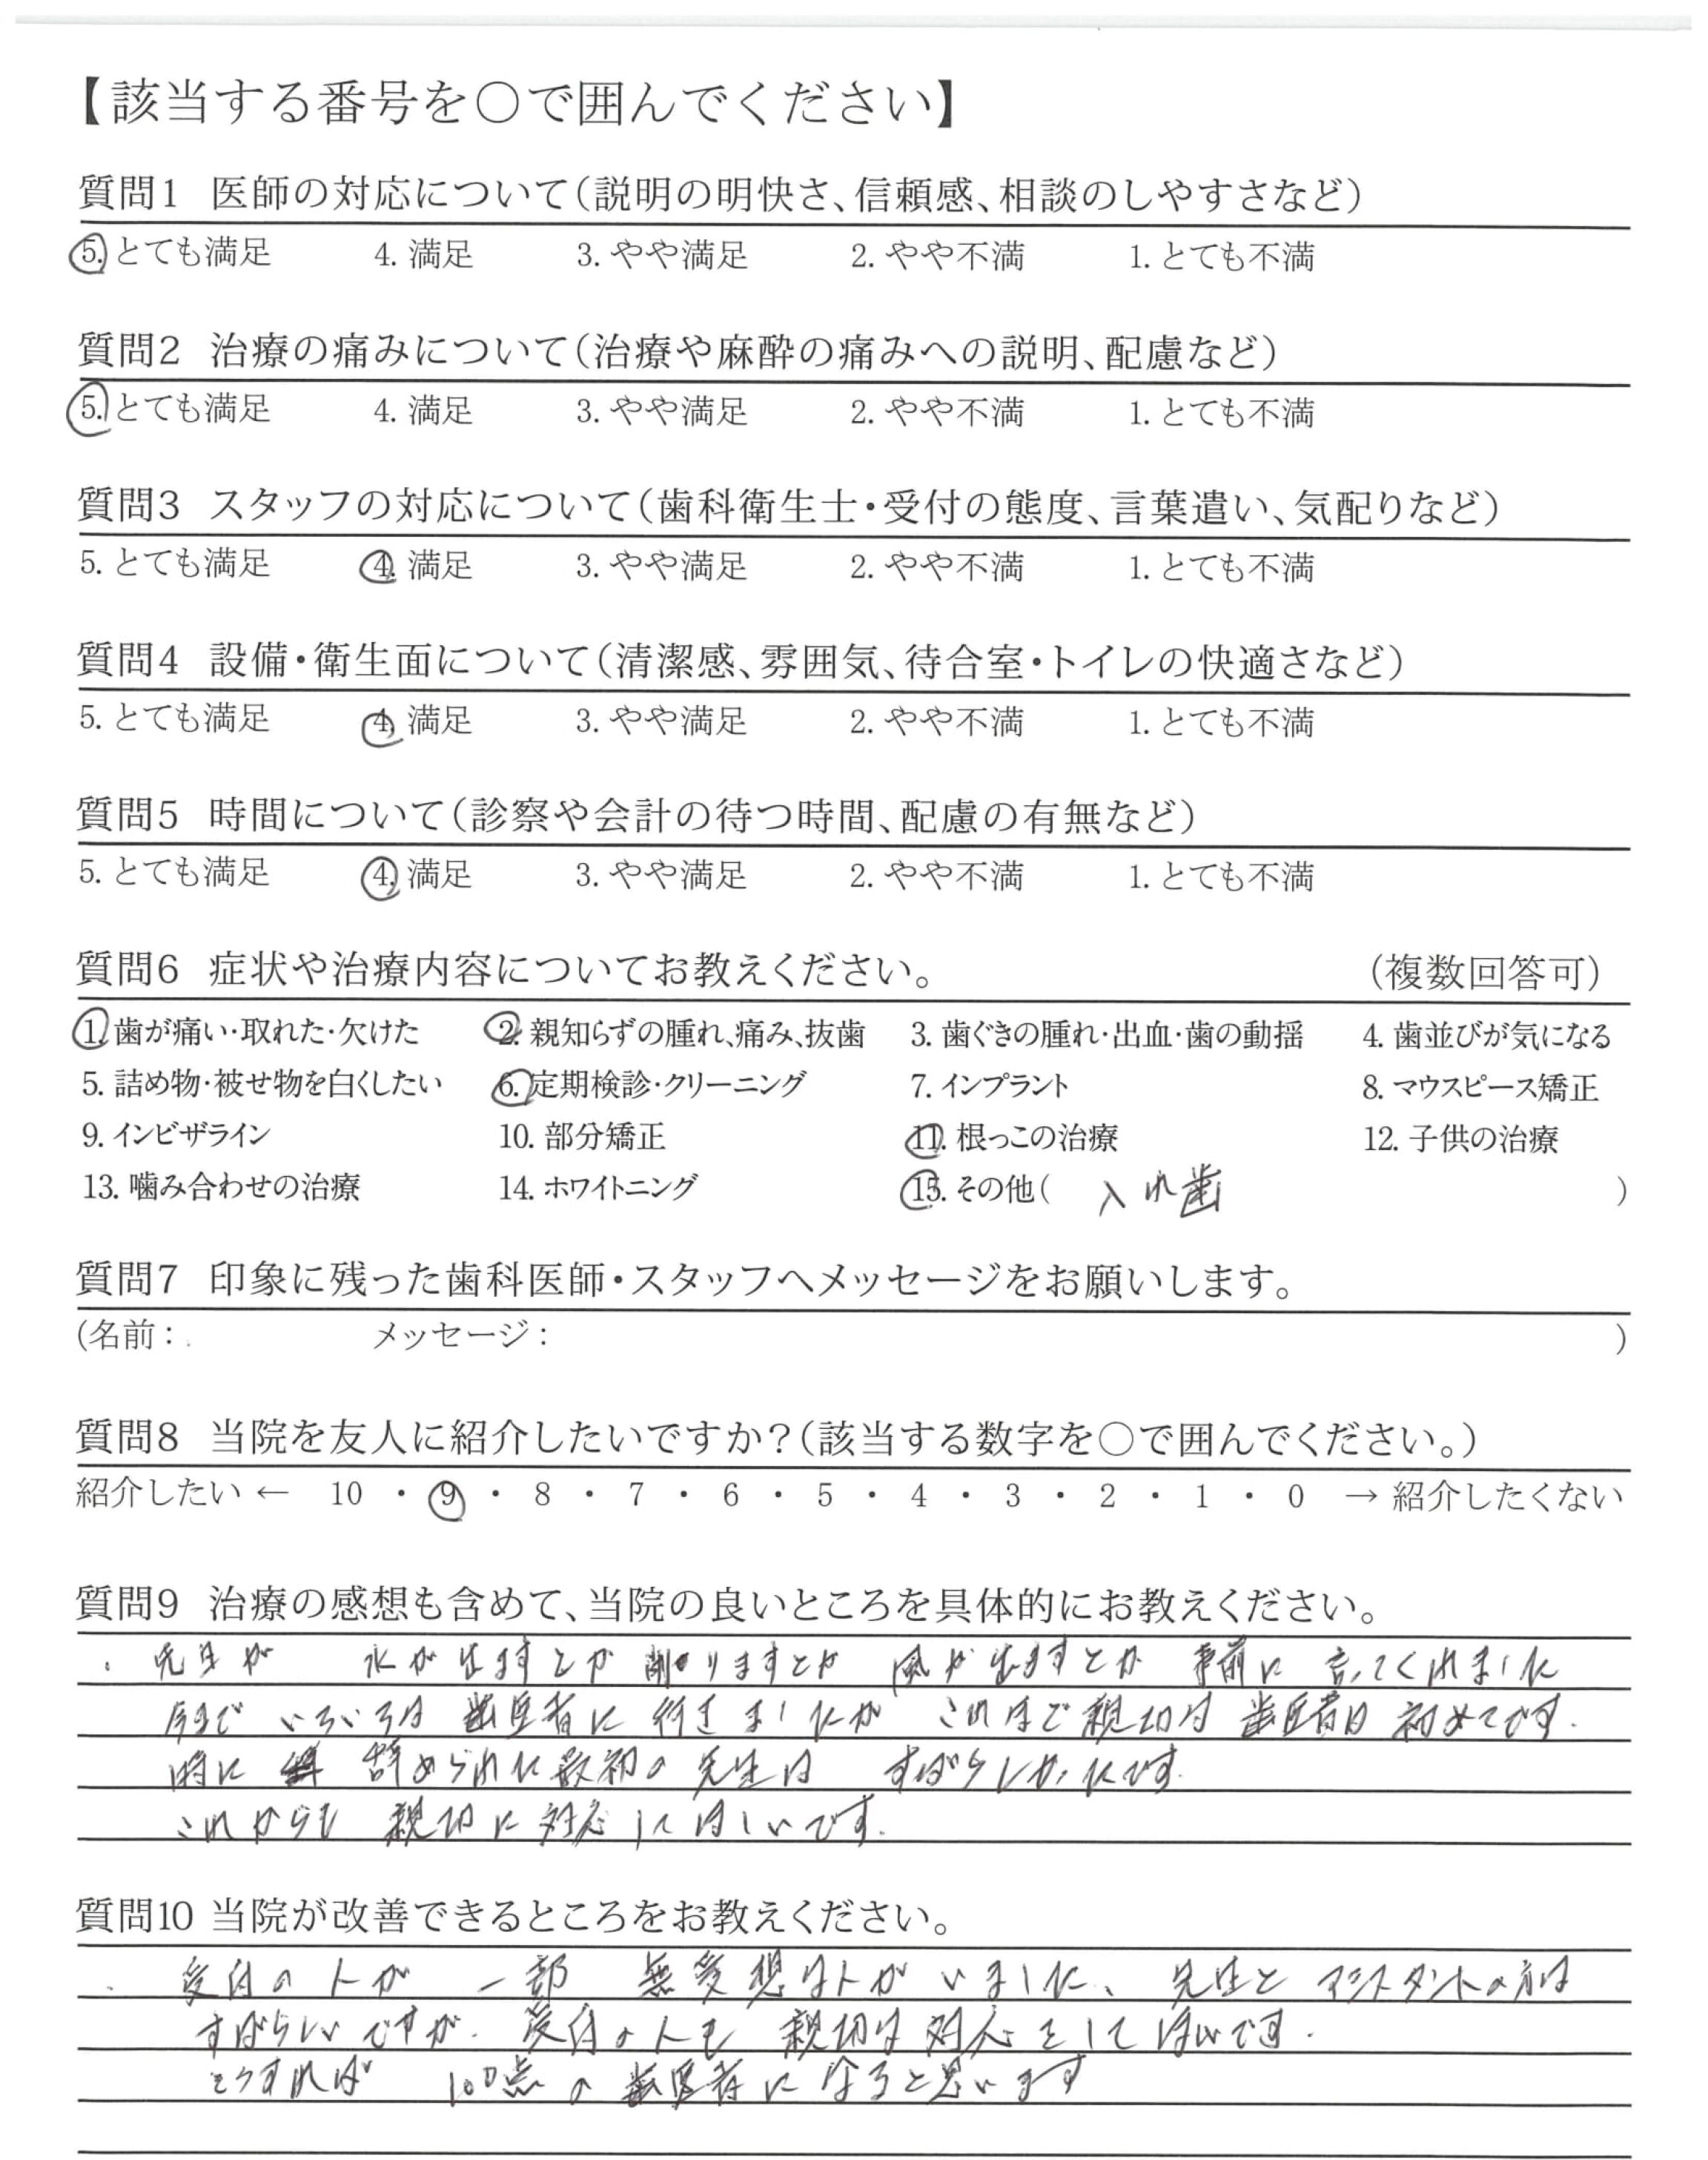 【該当する番号を○で囲んでください】
質問1 医師の対応について(説明の明快さ、信頼感、相談のしやすさなど)
5. とても満足 4. 満足 3. やや満足 2. やや不満 1. とても不満
質問2 治療の痛みについて(治療や麻酔の痛みへの説明、配慮など)
5. とても満足 4. 満足 3. やや満足 2. やや不満 1. とても不満
質問3 スタッフの対応について(歯科衛生士・受付の態度、言葉遣い、気配りなど)
5. とても満足 4. 満足 3. やや満足 2. やや不満 1. とても不満
質問4 設備・衛生面について(清潔感、雰囲気、待合室・トイレの快適さなど)
5. とても満足 4. 満足 3. やや満足 2. やや不満 1. とても不満
質問5 時間について(診察や会計の待つ時間、配慮の有無など)
5. とても満足 4. 満足 3. やや満足 2. やや不満 1. とても不満
質問6 症状や治療内容についてお教えください。 (複数回答可)
1. 歯が痛い・取れた・欠けた 2. 親知らずの腫れ、痛み、抜歯 3. 歯ぐきの腫れ・出血・歯の動揺 4. 歯並びが気になる
5. 詰め物・被せ物を白くしたい 6. 定期検診・クリーニング 7. インプラント 8. マウスピース矯正
9. インビザライン 10. 部分矯正 11. 根っこの治療 12. 子供の治療
13. 噛み合わせの治療 14. ホワイトニング 15. その他( 入れ歯 )
質問7 印象に残った歯科医師・スタッフへメッセージをお願いします。
(名前: メッセージ: )
質問8 当院を友人に紹介したいですか?(該当する数字を○で囲んでください。)
紹介したい ← 10 ・ 9 ・ 8 ・ 7 ・ 6 ・ 5 ・ 4 ・ 3 ・ 2 ・ 1 ・ 0 → 紹介したくない
質問9 治療の感想も含めて、当院の良いところを具体的にお教えください。
・先生が 水が出ますとか 削りますとか 風が出ますとか 事前に言ってくれました
今まで いろいろな 歯医者に 行きましたが これほど親切な 歯医者は 初めてです.
特に 辞められた最初の先生は すばらしかったです.
これからも 親切に対応してほしいです.
質問10 当院が改善できるところをお教えください。
・ 受付の人が 一部 無愛想な人が いました、先生と アシスタントの方は
すばらしいですが. 受付の人も 親切な対応をしてほしいです.
そうすれば 100点の歯医者になると思います